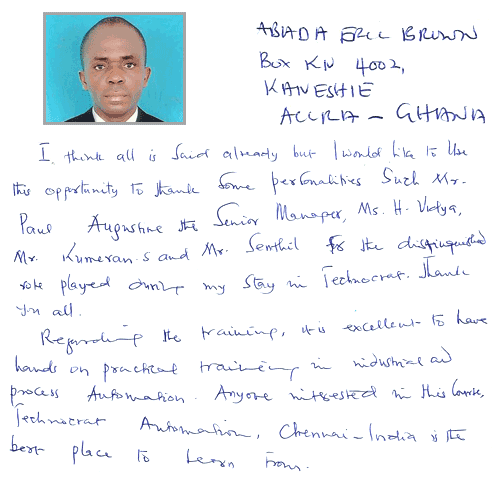 ABADA ERIC BROWN
BOX KN 4002,
KANESHIE
ACCRA - GHANA
I think all is said already but I would like to Use
this opportunity to thank Some personalities Such Mr.
Paul Augustine the Senior Manager, Ms. H. Vidya,
Mr. Kumeran.S and Mr. Senthil for the distinguished
role played during my stay in Technocrat. Thank
you all.
Regarding the training, it is excellent to have
hands on practical training in industrial and
process Automation. Anyone interested in this Course,
Technocrat Automation, Chennai-India is the
best place to learn from.